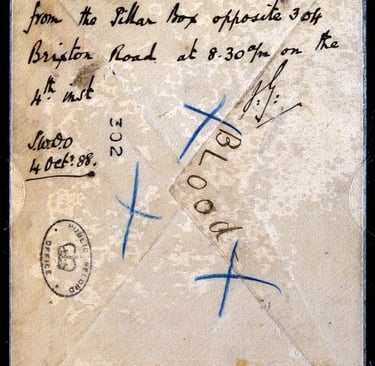 from the Pillar Box opposite 304
Brixton Road at 8.30 a/m on the
4th inst
J.G.
S.W.D.O
4 Octr. 88.
302
BLOOd
PUBLIC RECORD
OFFICE